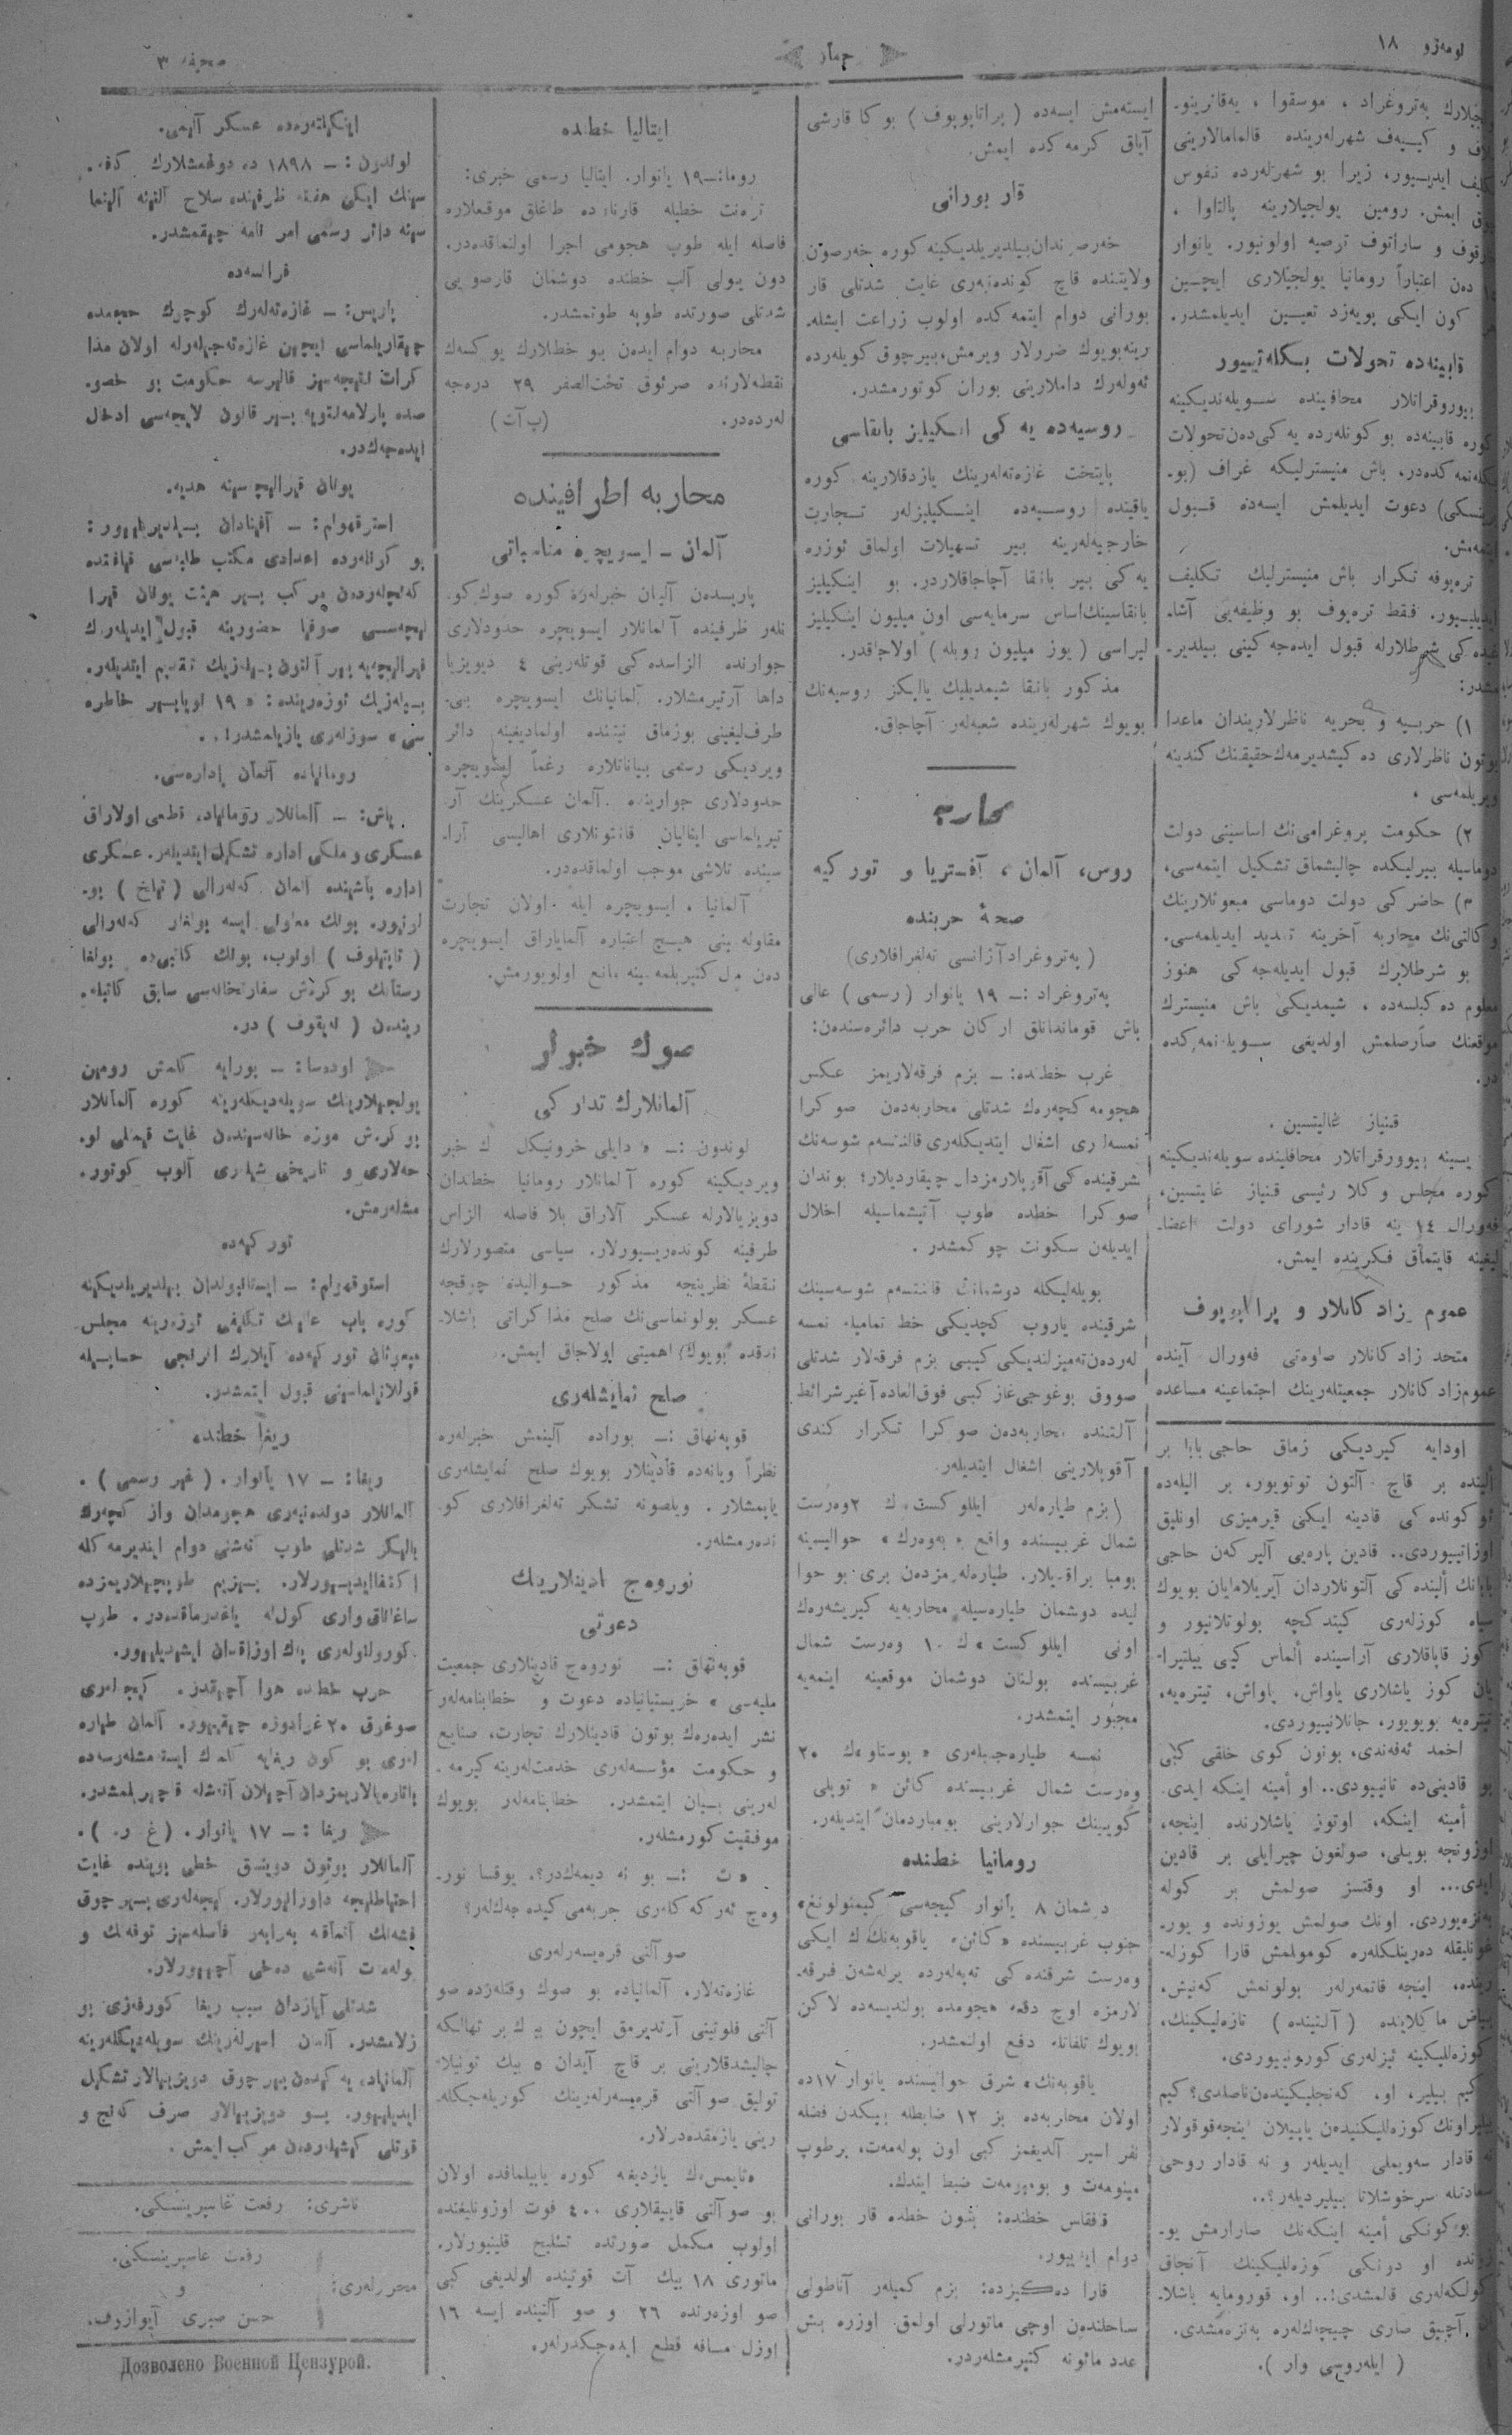 نومەرو ١٨
ترجمان
صحیفه ٣
موسقوا ، یەقاترینو-
و کییەف شهرلەرینده قالمامالارینی
ایدییور، زیرا بو شهرلەرده نفوس
ایمش. رومین یولجیلارینه پالتاوا ،
و ساراتوف توصیه اولونیور. یانوار
دەن اعتباراً رومانیا یولجیلاری ایچین
کون ایکی پویەزد تعیین ایدیلمشدر.
قابینەده تحولات بکلەنییور
بیوروقراتلار محافلینده سویلەندیکینه
کوره قابینەده بو کونلەرده یەکی دەن تحولات
بکلەنمەکدەدر، باش منیسترلیکه غراف (بو-
دعوت ایدیلمش ایسەده قبول
ترەپوفه تکرار باش منیسترلیك تکلیف
ایدیلییور. فقط ترەپوف بو وظیفەیی آشا-
غیدەکی شرطلارله قبول ایدەجەکینی بیلدیر-
مشدر:
١) حربیه و بحریه ناظرلاریندان ماعدا
بوتون ناظرلاری دەکیشدیرمەك حقینك کندینه
ویریلمەسی ،
٢) حکومت پروغرامی‌نك اساسینی دولت
دوماسیله بیرلیکده چالیشماق تشکیل ایتمەسی،
٣) حاضرکی دولت دوماسی مبعوثلارینك
وکالتی‌نك محاربه آخرینه تمدید ایدیلمەسی.
بو شرطلارك قبول ایدیلەجەکی هنوز
معلوم دەکیلسەده ، شیمدیکی باش منیسترك
موقعنك صارصلمش اولدیغی سویلەنمەکده
در.
قنیاز غالیتسین .
یینه بیوروقراتلار محافلینده سویلەندیکینه
کوره مجلس وکلا رئیسی قنیاز غالیتسین،
فەورال ١٤ ینه قادار شورای دولت اعضا-
لیغینه قایتماق فکرینده ایمش.
عموم زادکانلار و پراتاپوپوف
متحد زادکانلار صاوەتی فەورال آینده
عموم زادکانلار جمعیتلەرینك اجتماعینه مساعده
اودایه کیردیکی زمان حاجی بابا بر
ألینده بر قاچ آلتون توتویور، بر الیلەده
ئوکوندەکی قادینه ایکی قیرمیزی اونلیق
اوزاتییوردی.. قادین پارەیی آلیرکەن حاجی
بابانك ألیندەکی آلتونلاردان آیریلامایان بویوك
سیاه کوزلەری کیتدکجه بولوتلانیور و
کوز قاپاقلاری آراسینده ألماس کبی ییلتیرا-
یان کوز یاشلاری یاواش، یاواش، تیترەیه،
تیترەیه بویویور، جانلانییوردی.
احمد ئەفەندی، بوتون کوی خلقی کبی
بو قادینی‌ده تانییودی.. او أمینه اینکه ایدی.
أمینه اینکه، اوتوز یاشلارنده اینجه،
اوزونجه بویلی، صولغون چیرایلی بر قادین
ایدی... او وقتسز صولمش بر کوله
بەنزەیوردی. اونك صولمش یوزونده و یور-
غونلیقله دەرینلکلەره کومولمش قارا کوزلە-
رینده، اینجه قاتمەرلەر بولونمش کەنیش،
بیاض ماکلاینده (آلنینده) تازەلیکینك،
کوزەللیکینه ئیزلەری کورونییوردی.
کیم بیلیر، او، کەنجلیکیندەن ناصلدی؟ کیم
بیلیر اونك کوزەللیکیندەن یاپیلان اینجه قوقولار
نه قادار سەویملی ایدیلەر و نه قادار روحی
سعادتله سرخوشلاتا بیلیردیلەر؟..
بوکونکی أمینه اینکەنك صارارمش یو-
زونده او دونکی کوزەللیکینك آنجاق
کولکەلەری قالمشدی!.. او، قورومایه باشلا-
آچیق صاری چیچەکلەره بەنزەمشدی.
( ایلەروسی وار ).
ایستەمش ایسەده ( پراتاپوپوف ) بوکا قارشی
آیاق کرمەکده ایمش.
قار بورانی
خەرصوندان بیلدیریلدیکینه کوره خەرصون
ولایتنده قاچ کوندەنبەری غایت شدتلی قار
بورانی دوام ایتمەکده اولوب زراعت ایشلە-
رینه بویوك ضررلار ویرمش، بیرچوق کویلەرده
ئەولەرك داملارینی بوران کوتورمشدر.
روسیەده یەکی انکیلیز بانقاسی
پایتخت غازەتەلەرینك یازدقلارینه کوره
یاقینده روسیەده اینکیلیزلەر تجارت
خارجیەلەرینه بیر تسهیلات اولماق ئوزره
یەکی بیر بانقا آچاجاقلاردر. بو اینکیلیز
بانقاسینك اساس سرمایەسی اون میلیون اینکیلیز
لیراسی ( یوز میلیون روبله ) اولاجاقدر.
مذکور بانقا شیمدیلیك یالیکز روسیەنك
بویوك شهرلەرینده شعبەلەر آچاجاق.
محاربه
روس، آلمان ، آفستریا و تورکیه
صحنهٔ حربنده
( پەتروغراد آژانسی تەلغرافلاری)
پەتروغراد :– ١٩ یانوار ( رسمی ) عالی
باش قوماندانلق ارکان حرب دائرەسندەن:
غرب خطنده: – بزم فرقەلاریمز عکس
هجومه کچەرەك شدتلی محاربەدەن صوکرا
نمسەلری اشغال ایتدیکلەری قالنتسەم شوسەنك
شرقیندەکی آقوپلارمزدان چیقاردیلار؛ بوندان
صوکرا خطده طوپ آتیشماسیله اخلال
ایدیلەن سکونت چوکمشدر .
بویلەلیکله دوشمانك قالنتسەم شوسەسینك
شرقینده یاروب کچدیکی خط تمامیله نمسه
لەردەن تەمیزلندیکی کیبی بزم فرقەلار شدتلی
صووق بوغوجی غاز کبی فوق العاده آغیر شرائط
آلتنده محاربەدەن صوکرا تکرار کندی
آقوپلارینی اشغال ایتدیلەر.
بزم طیارەلەر ایللوکست ك ٢ وەرست
شمال غربیسنده واقع حوالیسینه
بومبا براقدیلار. طیارەلەرمزدەن بری بو حوا
لیده دوشمان طیارەسیله محاربەیه کیریشەرەك
اونی ایللوکست ك ١٠ وەرست شمال
غربیسنده بولنان دوشمان موقعینه اینمەیه
مجبور ایتمشدر.
نمسه طیارەجیلەری « بوستاو»ك ٢٠
وەرست شمال غربیسنده کائن « توبلی
کویینك جوارلارینی بومباردمان ایتدیلەر.
رومانیا خطنده
دوشمان ٨ یانوار کیجەسی کیمپولونغ
جنوب غربیسنده «کائن» یاقوبەنك ك ایکی
وەرست شرقندەکی تەپەلەرده یرلەشەن فرقه-
لارمزه اوچ دفعه هجومده بولندیسەده لاکن
بویوك تلفاتله دفع اولنمشدر.
یاقوبەنك شرق حوالیسنده یانوار ١٧ده
اولان محاربەده بز ١٢ ضابطله بیکدن فضله
نفر اسیر آلدیغمز کبی اون پولەمەت، برطوپ
مینومەت و بومبومەت ضبط ایتدك.
قافقاس خطنده: بتون خطده قار بورانی
دوام ایدییور.
قارا دەکیزده: بزم کمیلەر آناطولی
ساحلندەن اوچی ماتورلی اولمق اوزره بش
عدد مائونه کتیرمشلەردر.
ایتالیا خطنده
روما:–١٩ یانوار. ایتالیا رسمی خبری:
ترەنت خطیله قارنیاده طاغلق موقعلاره
فاصله ایله طوپ هجومی اجرا اولنماقدەدر.
دون یولی آلپ خطنده دوشمان قارصویی
شدتلی صورتده طوپه طوتمشدر.
محاربه دوام ایدەن بو خطلارك یوکسەك
نقطەلارنده صوئوق تحت الصفر ٢٩ درەجه
لەردەدر. (پ آت)
محاربه اطرافینده
آلمان – ایسویچره مناسباتی
پاریسدەن آلینان خبرلەره کوره صوك کو-
نلەر ظرفینده آلمانلار ایسویچره حدودلاری
جوارنده الزاسدەکی قوتلەرینی ٤ دیویزیا
داها آرتیرمشلار. آلمانیانك ایسویچره بی-
طرفلیغینی بوزماق نیتنده اولمادیغینه دائر
ویردیکی رسمی بیاناتلاره رغماً ایسویچره
حدودلاری جوارینده آلمان عسکرینك آر-
تیریلماسی ایتالیان قانتونلاری اهالیسی آرا-
سینده تلاشی موجب اولماقدەدر.
آلمانیا ، ایسویچره ایله اولان تجارت
مقاولەینی هیچ اعتباره آلمایاراق ایسویچره
دەن مال کتیریلمەسینه مانع اولویورمش.
صوك خبرلر
آلمانلارك تدارکی
لوندون :– « دایلی خرونیکل ك خبر
ویردیکینه کوره آلمانلار رومانیا خطندان
دویزیالارله عسکر آلاراق بلا فاصله الزاس
طرفینه کوندەرییورلار. سیاسی متصورلارك
نقطهٔ نظرینجه مذکور حوالیده چوقجه
عسکر بولونماسی‌نك صلح مذاکراتی باشلا-
ندقده بویوك اهمیتی اولاجاق ایمش.
صلح نمایشلەری
قوپەنهاق :– بوراده آلینمش خبرلەره
نظراً ویانەده قادینلار بویوك صلح نمایشلەری
یاپمشلار . ویلصونه تشکر تەلغرافلاری کو-
ندەرمشلەر.
نوروەج قادینلارینك
دعوتی
قوپەنهاق :– نوروەج قادینلاری جمعیت
ملیەسی » خریستیانیاده دعوت و خطابنامەلەر
نشر ایدەرەك بوتون قادینلارك تجارت، صنایع
و حکومت مؤسسەلەری خدمت‌لەرینه کیرمە-
لەرینی بیان ایتمشدر. خطابنامەلەر بویوك
موفقیت کورمشلەر.
ت :– بو نه دیمەکدر؟. یوقسا نور-
وەج ئەرکەکلەری حربه‌می کیدەجەکلەر؟
صو آلتی قرەیسەرلەری
غازەتەلار، آلمانیاده بو صوك وقتلەرده صو
آلتی فلوتینی آرتدیرمق ایچون پەك بر تهالکه
چالیشدقلارینی بر قاچ آیدان ٥ بیك تونیلا-
تولیق صو آلتی قرەیسەرلەرینك کوریلەجکلە-
رینی یازمقدەدرلار.
«تایمس»ك یازدیغه کوره یاپیلماقده اولان
بو صو آلتی قایقلاری ٤٠٠ فوت اوزونلیغنده
اولوب مکمل صورتده تسلیح قلینیورلار.
ماتوری ١٨ بیك آت قوتینده اولدیغی کبی
صو اوزەرنده ٢٦ و صو آلتینده ایسه ١٦
اوزل مسافه قطع ایدەجکدرلەر.
اینکیلتەرەده عسکر آلیمی.
لوندون :– ١٨٩٨ ده دوغمشلارك
ایکی هفته ظرفینده سلاح آلتینه آلینما
سینه دائر رسمی امر نامه چیقمشدر.
فرانسەده
پاریس: – غازەتەلەرك کوچوك حجمده
چیقاریلماسی ایچین غازەتەجیلەرله اولان مذا
کرات نتیجەسز قالیرسه حکومت بو خصو-
صده پارلامەنتویه بیر قانون لایحەسی ادخال
ایدەجەکدر.
یونان قیرالیچەسینه هدیه.
استوقهولم: – آفینادان بیلدیریلییور:
بو کونلەرده اعدادی مکتب طلبەسی قیافتنده
کەنجلەردەن مرکب بیر هیئت یونان قیرا
لیچەسی صوفیا حضورینه قبول ایدیلەرك
قیرالیچەیه بیر آلتون بیلەزیك تقدیم ایتدیلەر.
بیلەزیك ئوزەرینده: « ١٩ نویابیر خاطره
سی» سوزلەری یازیلمشدر!..
رومانیاده آلمان إدارەسی.
یاش: – آلمانلار رومانیاده قطعی اولاراق
عسکری و ملکی اداره تشکیل ایتدیلەر. عسکری
اداره باشینده آلمان گەنەرالی ( تولخ ) بو-
لونیور. بونك معاونی ایسه بولغار گەنەرالی
( تانتیلوف ) اولوب، بونك کاتبی‌ده بولغا
رستانك بوکرەش سفارتخانەسی سابق کاتبلە-
ریندەن ( لەیقوف ) در.
اودەسا: – بورایه کلمش رومین
یولجیلارینك سویلەدیکلەرینه کوره آلمانلار
بوکرەش موزه خانەسیندەن غایت قیمتلی لو-
حەلاری و تاریخی شیلەری آلوب کوتور-
مشلەرمش.
تورکیەده
استوقهولم: – ایستانبولدان بیلدیریلدیکینه
کوره باب عالینك تکلیفی ئوزەرینه مجلس
مبعوثان تورکیەده آیلارك افرنجی حسابیله
قوللانیلماسینی قبول ایتمشدر.
ریغا خطنده
ریغا: – ١٧ یانوار. ( غیر رسمی ) .
آلمانلار دوندەنبەری هجومدان واز کچەرك
یالیکز شدتلی طوپ آتەشنی دوام ایتدیرمەکله
اکتفا ایدییورلار. بیزیم طوپچیلاریمزده
ساغاناق واری کولله یاغدرماقدەدر. طوپ
کورولتولەری پك اوزاقدان ایشیدیلییور.
حرب خطنده هوا آچیقدر. کیجەلەری
صوغوق ٢٠ غرادوزه چیقییور. آلمان طیاره
لەری بو کون ریغایه کلمك ایستەمشلەرسەده
باتارەیالاریمزدان آچیلان آتەشله قاچیریلمشدر.
ریغا :– ١٧ یانوار. (غ ر. ) .
آلمانلار بوتون دوینسق خطی بوینده غایت
احتیاطلیجه داورانیورلار. کیجەلەری بیر چوق
فشەنك آتماقله بەرابەر فاصلەسز توفەنك و
پولەمت آتەشی دەخی آچییورلار.
شدتلی آیازدان سبب ریغا کورفەزی بو
زلامشدر. آلمان اسیرلەرینك سویلەدیکلەرینه
آلمانیاده یەکیدەن بیر چوق دویزییالار تشکیل
ایدیلییور. بو دویزییالار صرف کەنج و
قوتلی کیشیلەردەن مرکب ایمش .
ناشری: رفعت غاسپرینسکی.
محررلەری:
رفعت غاسپرینسکی.
و
حسن صبری آیوازوف.
Дозволено Военной Цензурой.